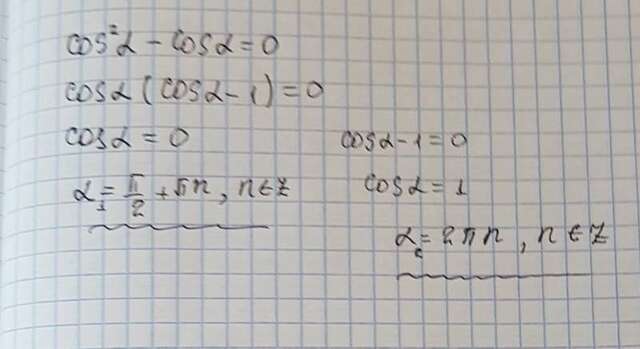 cos²α - cosα = 0
cosα (cosα - 1) = 0
cosα = 0
α₁ = π/2 + πn, n ∈ Z
cosα - 1 = 0
cosα = 1
α₂ = 2πn, n ∈ Z